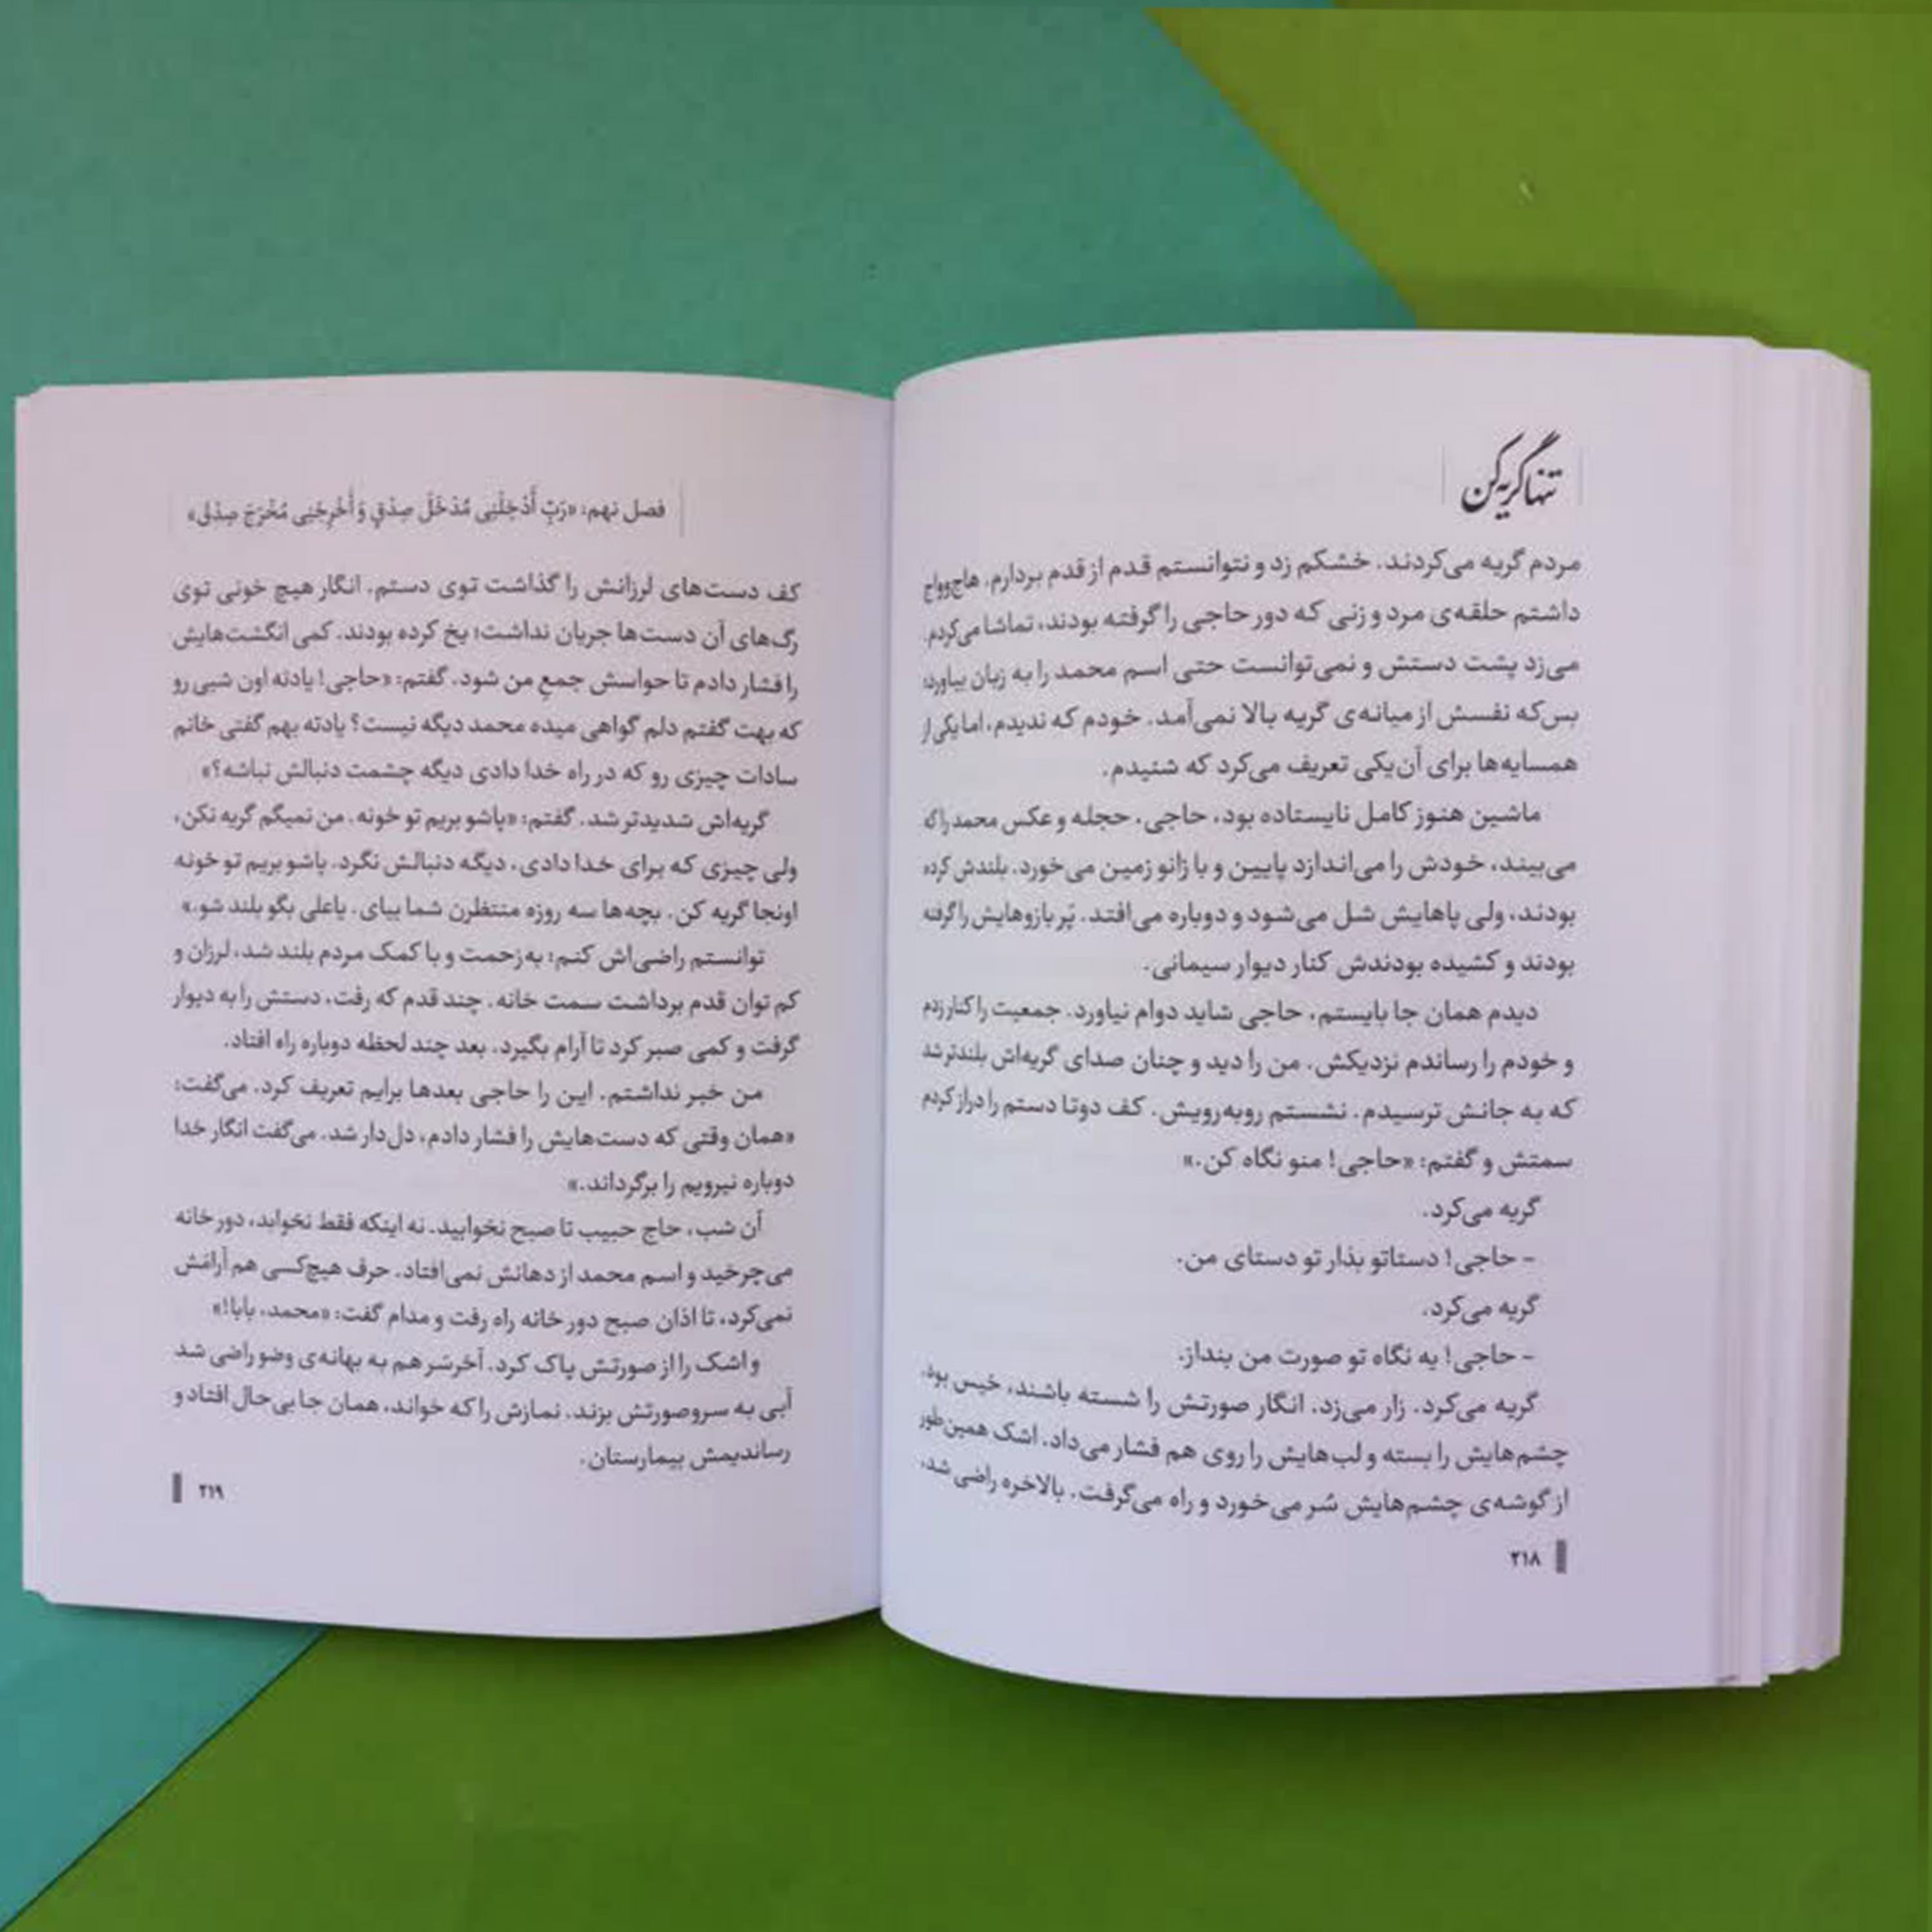 تنها گریه کن
مردم گریه می‌کردند. خشکم زد و نتوانستم قدم از قدم بردارم. هاج‌وواج
داشتم حلقه‌ی مرد و زنی که دور حاجی را گرفته بودند، تماشا می‌کردم.
می‌زد پشت دستش و نمی‌توانست حتی اسم محمد را به زبان بیاورد؛
بس‌که نفسش از میانه‌ی گریه بالا نمی‌آمد. خودم که ندیدم، اما یکی از
همسایه‌ها برای آن‌یکی تعریف می‌کرد که شنیدم.
ماشین هنوز کامل نایستاده بود، حاجی، حجله و عکس محمد را که
می‌بیند، خودش را می‌اندازد پایین و با زانو زمین می‌خورد. بلندش کرده
بودند، ولی پاهایش شل می‌شود و دوباره می‌افتد. پَر بازوهایش را گرفته
بودند و کشیده بودندش کنار دیوار سیمانی.
دیدم همان جا بایستم، حاجی شاید دوام نیاورد. جمعیت را کنار زدم
و خودم را رساندم نزدیکش. من را دید و چنان صدای گریه‌اش بلندتر شد
که به جانش ترسیدم. نشستم روبه‌رویش. کف دوتا دستم را دراز کردم
سمتش و گفتم: «حاجی! منو نگاه کن.»
گریه می‌کرد.
- حاجی! دستاتو بذار تو دستای من.
گریه می‌کرد.
- حاجی! یه نگاه تو صورت من بنداز.
گریه می‌کرد. زار می‌زد. انگار صورتش را شسته باشند، خیس بود.
چشم‌هایش را بسته و لب‌هایش را روی هم فشار می‌داد. اشک همین‌طور
از گوشه‌ی چشم‌هایش سُر می‌خورد و راه می‌گرفت. بالاخره راضی شد.
۲۱۸
فصل نهم: «رَبِّ أَدْخِلْنِی مُدْخَلَ صِدْقٍ وَ أَخْرِجْنِی مُخْرَجَ صِدْقٍ»
کف دست‌های لرزانش را گذاشت توی دستم. انگار هیچ خونی توی
رگ‌های آن دست‌ها جریان نداشت؛ یخ کرده بودند. کمی انگشت‌هایش
را فشار دادم تا حواسش جمعِ من شود. گفتم: «حاجی! یادته اون شبی رو
که بهت گفتم دلم گواهی میده محمد دیگه نیست؟ یادته بهم گفتی خانم
سادات چیزی رو که در راه خدا دادی دیگه چشمت دنبالش نباشه؟»
گریه‌اش شدیدتر شد. گفتم: «پاشو بریم تو خونه. من نمیگم گریه نکن،
ولی چیزی که برای خدا دادی، دیگه دنبالش نگرد. پاشو بریم تو خونه
اونجا گریه کن. بچه‌ها سه روزه منتظرن شما بیای. یاعلی بگو بلند شو.»
توانستم راضی‌اش کنم؛ به‌زحمت و با کمک مردم بلند شد، لرزان و
کم توان قدم برداشت سمت خانه. چند قدم که رفت، دستش را به دیوار
گرفت و کمی صبر کرد تا آرام بگیرد. بعد چند لحظه دوباره راه افتاد.
من خبر نداشتم. این را حاجی بعدها برایم تعریف کرد. می‌گفت:
«همان وقتی که دست‌هایش را فشار دادم، دل‌دار شد. می‌گفت انگار خدا
دوباره نیرویم را برگرداند.»
آن شب، حاج حبیب تا صبح نخوابید. نه اینکه فقط نخوابد، دور خانه
می‌چرخید و اسم محمد از دهانش نمی‌افتاد. حرف هیچ‌کسی هم آرامَش
نمی‌کرد، تا اذان صبح دور خانه راه رفت و مدام گفت: «محمد، بابا!»
و اشک را از صورتش پاک کرد. آخرسَر هم به بهانه‌ی وضو راضی شد
آبی به سروصورتش بزند. نمازش را که خواند، همان جا بی‌حال افتاد و
رساندیمش بیمارستان.
۲۱۹